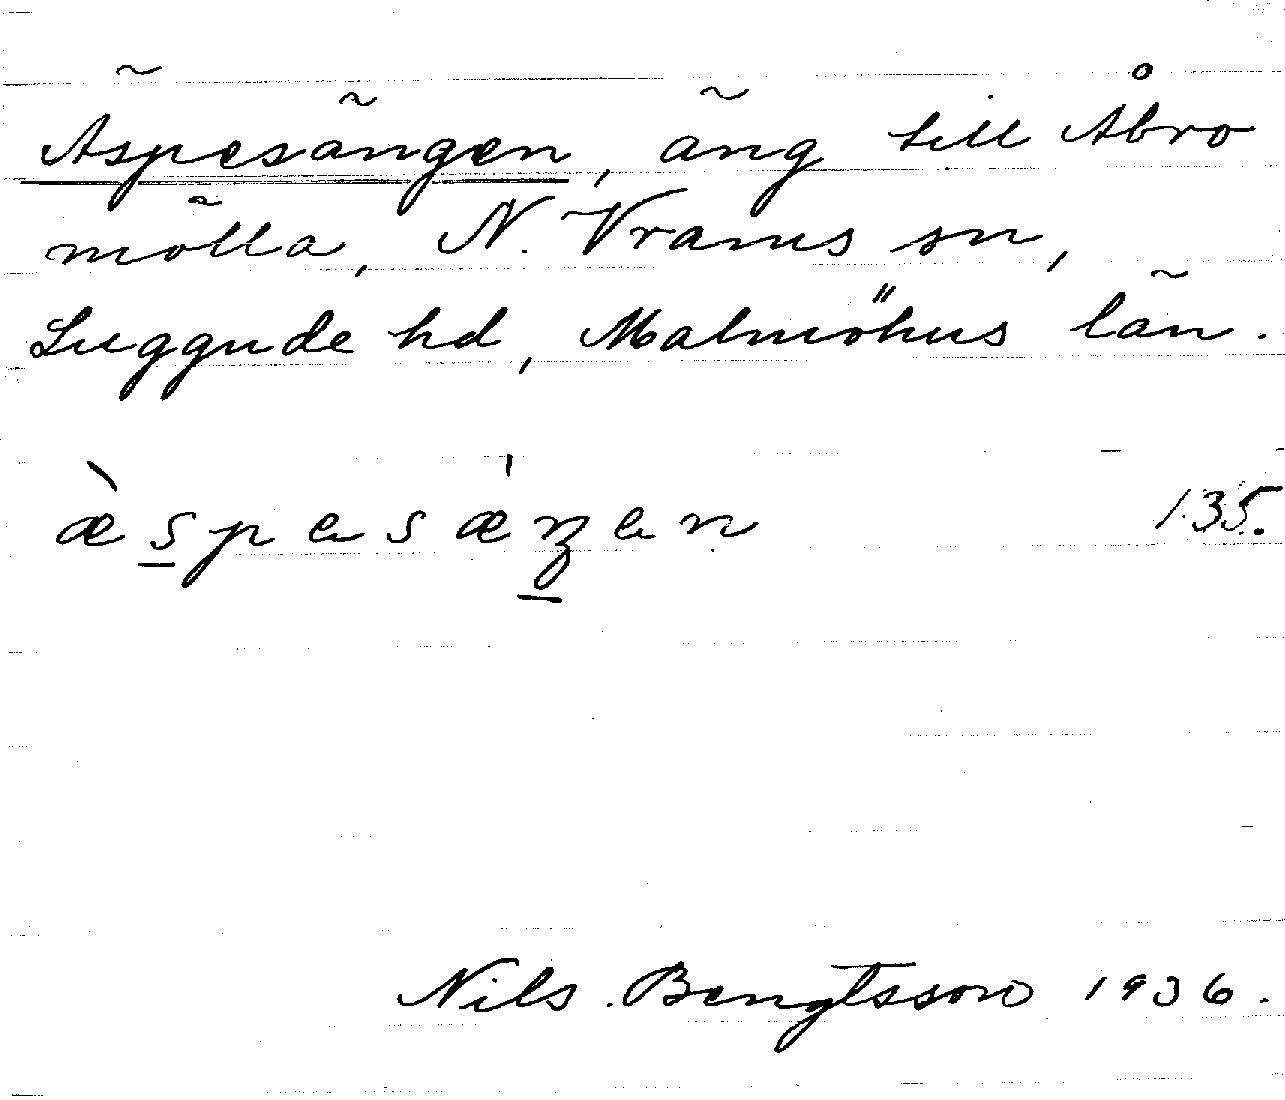 Äspesängen, äng till Åbro
mölla, N. Vrams sn,
Luggude hd, Malmöhus län.
æ̀spesæ'ŋen 135.
Nils Bengtsson 1936.